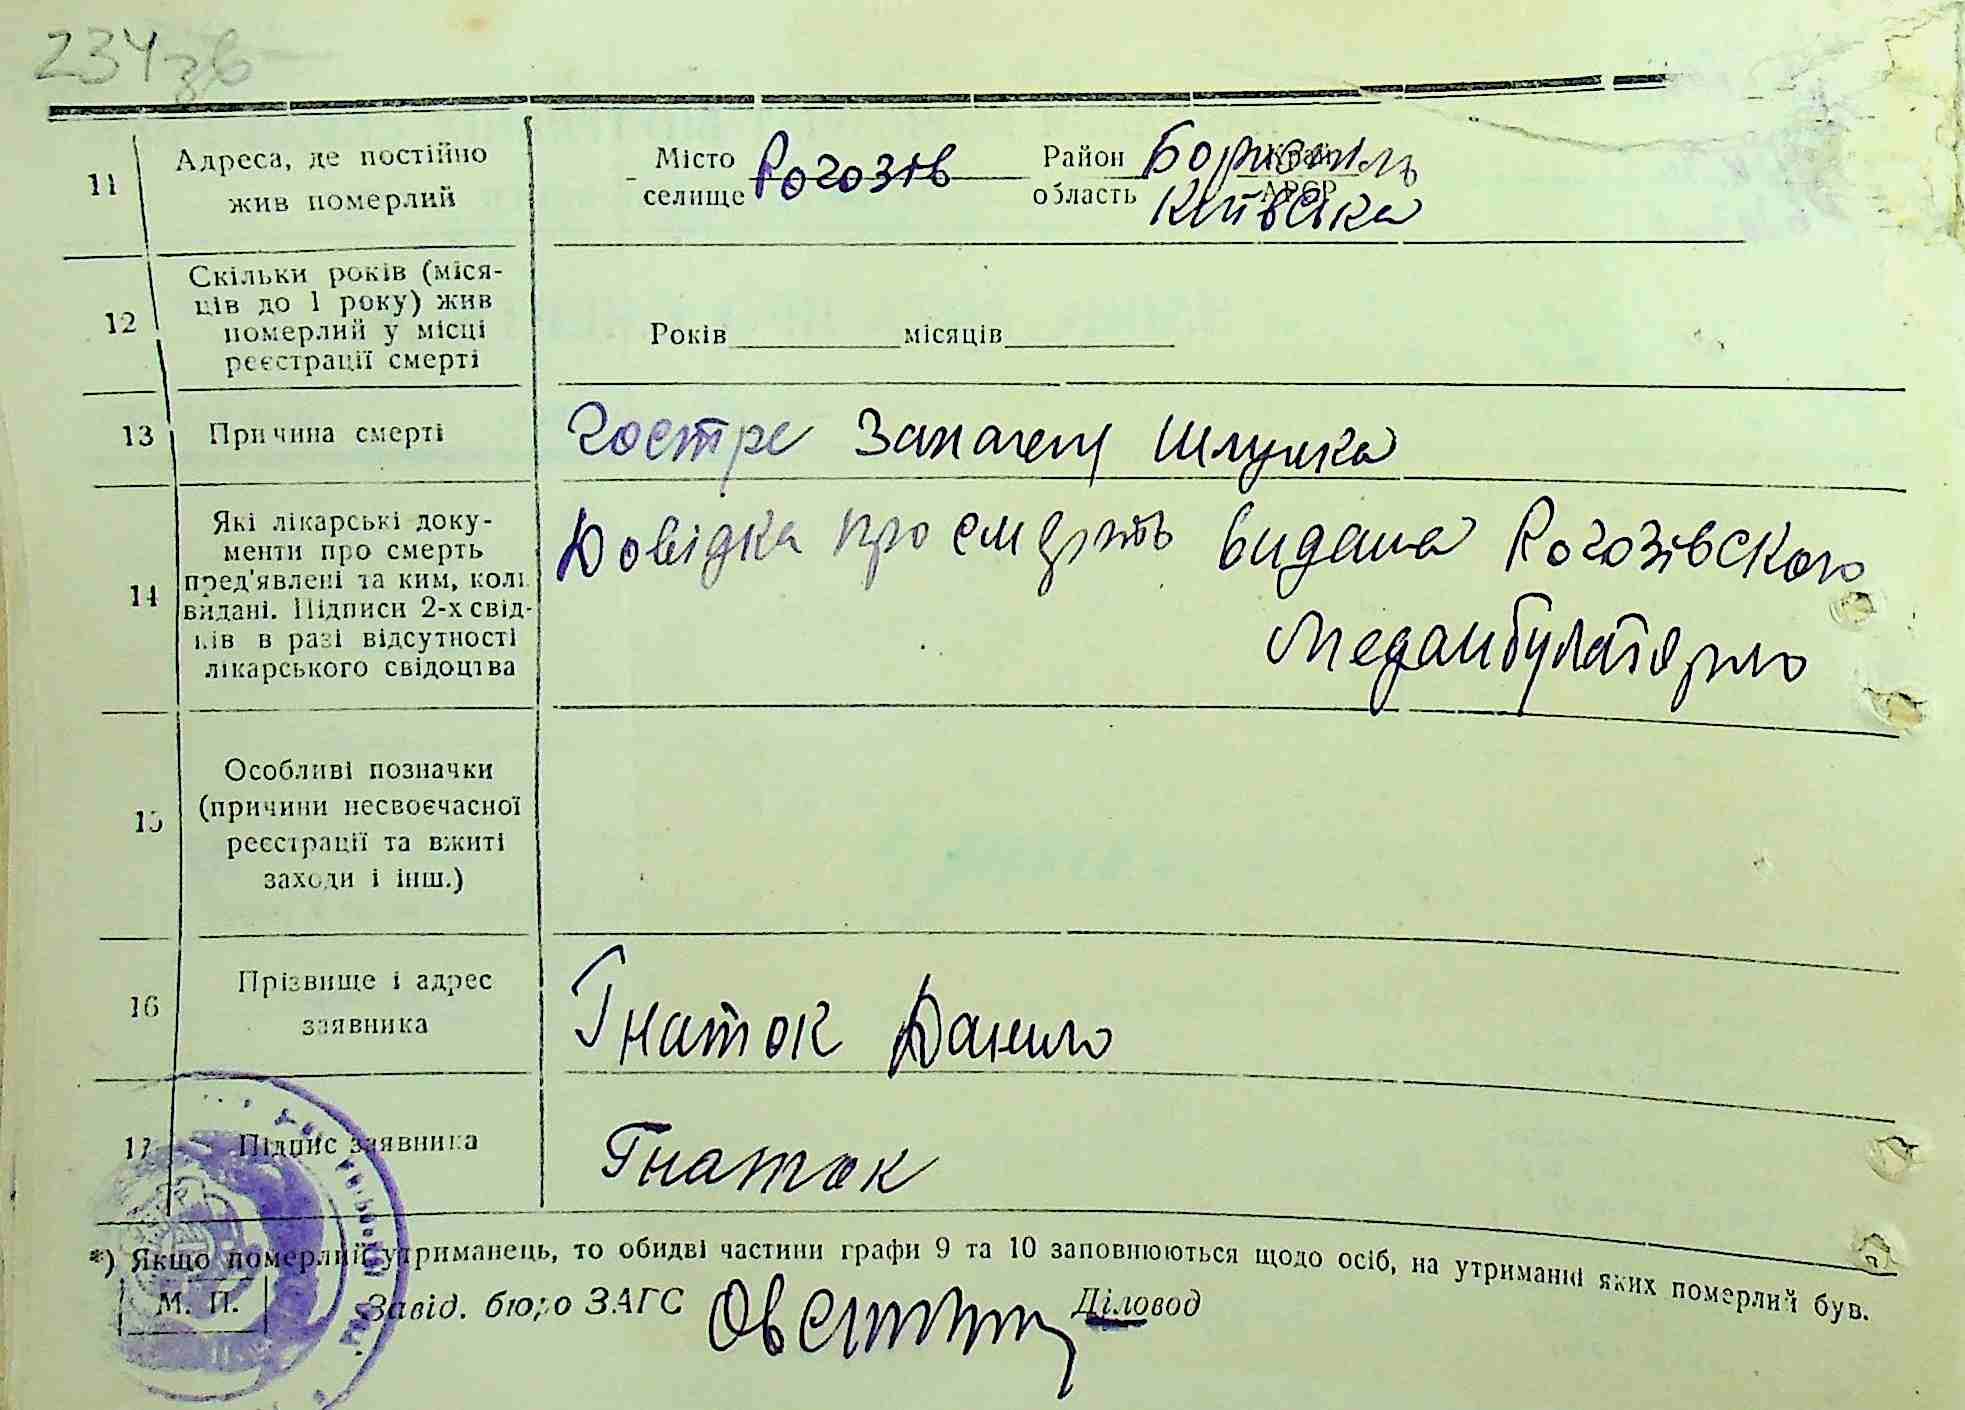 234 зв
11 Адреса, де постійно жив померлий
Місто селище Рогозів Район Бориспіль Край
область Київська АРСР
12 Скільки років (міся-
ців до 1 року) жив
померлий у місці
реєстрації смерті
Років місяців
13 Причина смерті
Гостре Запалення шлунка
14 Які лікарські доку-
менти про смерть
пред'явлені та ким, коли
видані. Підписи 2-х свід-
ків в разі відсутності
лікарського свідоцтва
Довідка про смерть видана Рогозівского
Медамбулаторию
15 Особливі позначки
(причини несвоєчасної
реєстрації та вжиті
заходи і інш.)
16 Прізвище і адрес
заявника
Гнаток Данило
17 Підпис заявника
Гнаток
*) Якщо померлий утриманець, то обидві частини графи 9 та 10 заповнюються щодо осіб, на утриманні яких померлий був.
М. П. Завід. бюро ЗАГС Діловод